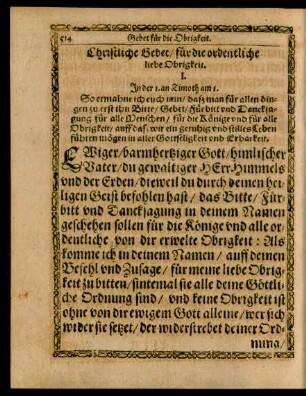 514 Gebet für die Obrigkeit.
Christliche Gebet / für die ordentliche
liebe Obrigkeit.
I.
In der 1. an Timoth am 1.
So ermahne ich euch nun / daß man für allen din-
gen zu erst thu Bitte / Gebet / Fürbitt vnd Dancksa-
gung für alle Menschen / für die Könige vnd für alle
Obrigkeit / auff daß wir ein geruhig vnd stilles Leben
führen mögen in aller Gottseligkeit vnd Erbarkeit.
EWiger / barmhertziger Gott / himlischer
Vater / du gewaltiger HErr Himmels
vnd der Erden / dieweil du durch deinen hei-
ligen Geist befohlen hast / das Bitte / Für-
bitt vnd Dancksagung in deinem Namen
geschehen sollen für die Könige vnd alle or-
dentliche von dir erwelte Obrigkeit: Als
komme ich in deinem Namen / auff deinen
Befehl vnd Zusage / für meine liebe Obrig-
keit zu bitten / sintemal sie alle deine Göttli-
che Ordnung sind / vnd keine Obrigkeit ist
ohne von dir ewigem Gott alleine / wer sich
wider sie setzet / der widerstrebet deiner Ord-
nung /